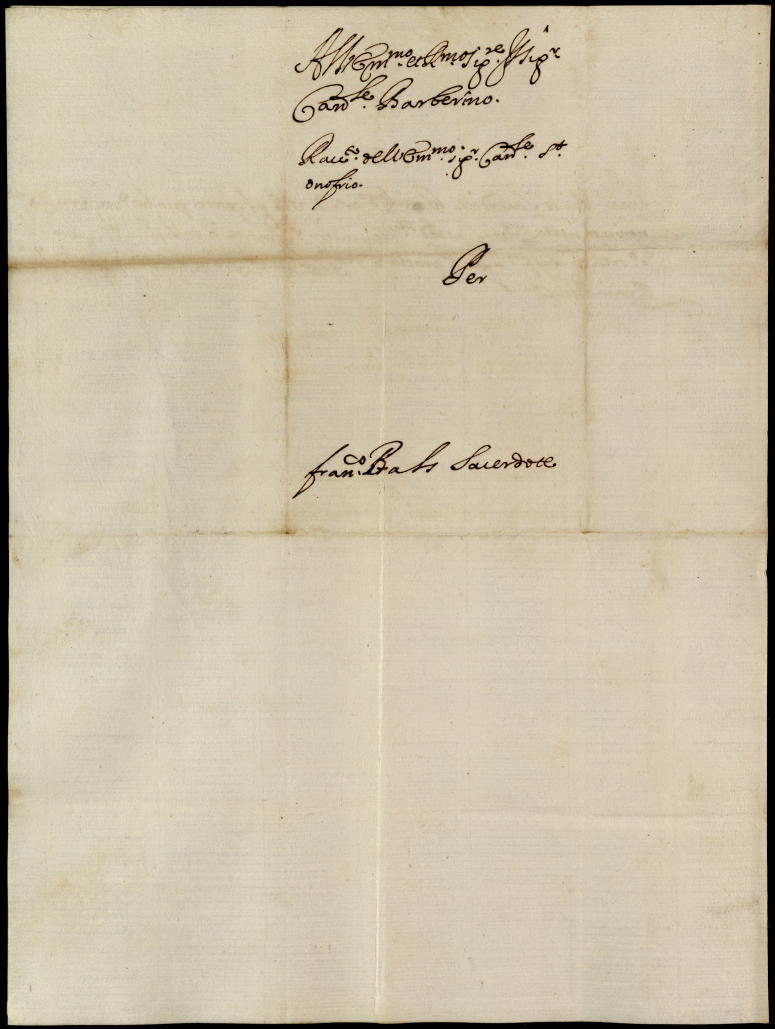 All'Em.mo et R.mo Sig.re Il Sig.r
Card.le Barberino.
Racc.to dell'Em.mo Sig.r Card.le St.
onofrio.
Per
fran.co Sacerdote